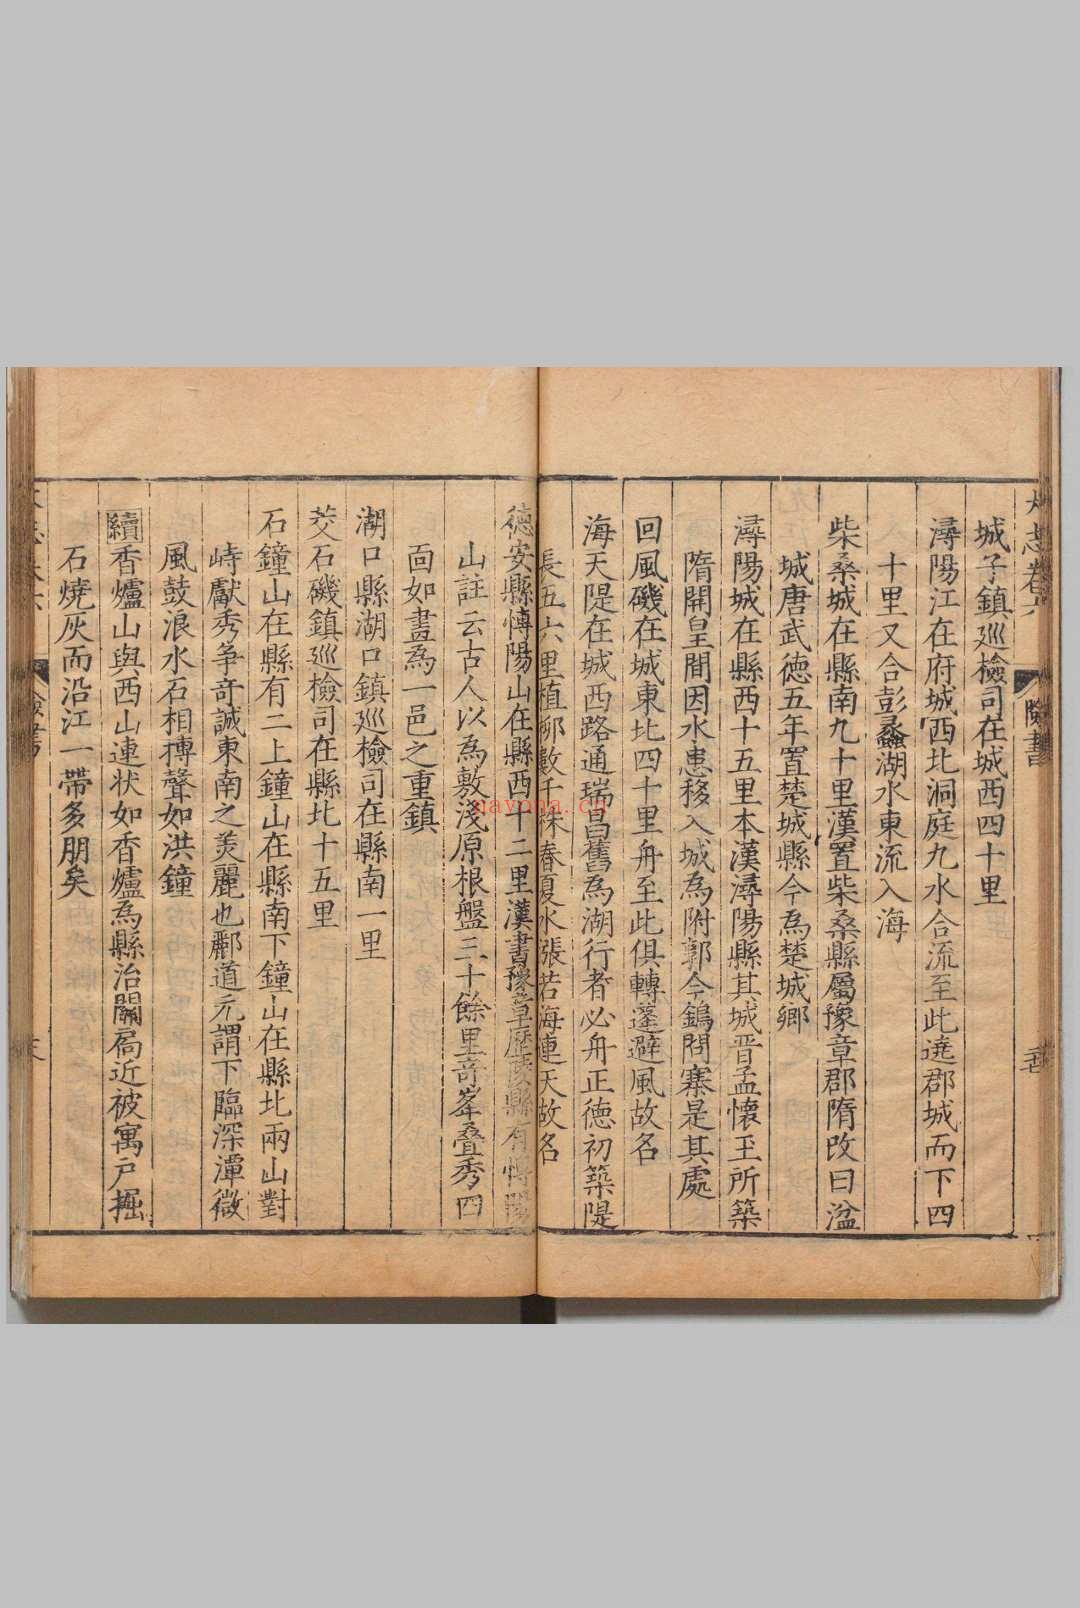 城子鎮廵檢司在城西四十里
潯陽江在府城西北洞庭九水合流至此遶郡城而下四
十里又合彭蠡湖水東流入海
柴桑城在縣南九十里漢置柴桑縣屬豫章郡隋改曰湓
城唐武德五年置楚城縣今為楚城鄉
潯陽城在縣西十五里本漢潯陽縣其城晋孟懷玉所築
隋開皇間因水患移入城為附郭今鶴問寨是其處
回風磯在城東北四十里舟至此俱轉蓬避風故名
海天隄在城西路通瑞昌舊為湖行者必舟正德初築隄
長五六里植柳數千株春夏水漲若海連天故名
德安縣愽陽山在縣西十二里漢書豫章歷陵縣有愽陽
山註云古人以為敷淺原根盤三十餘里竒峯叠秀四
面如畫為一邑之重鎮
湖口縣湖口鎮廵檢司在縣南一里
茭石磯鎮廵檢司在縣北十五里
石鐘山在縣有二上鐘山在縣南下鐘山在縣北兩山對
峙獻秀争竒誠東南之羙麗也酈道元謂下臨深潭微
風鼓浪水石相摶聲如洪鐘
續香爐山與西山連状如香爐為縣治關扃近被寓戸掘
石燒灰而沿江一帶多朋矣
nayona.cn